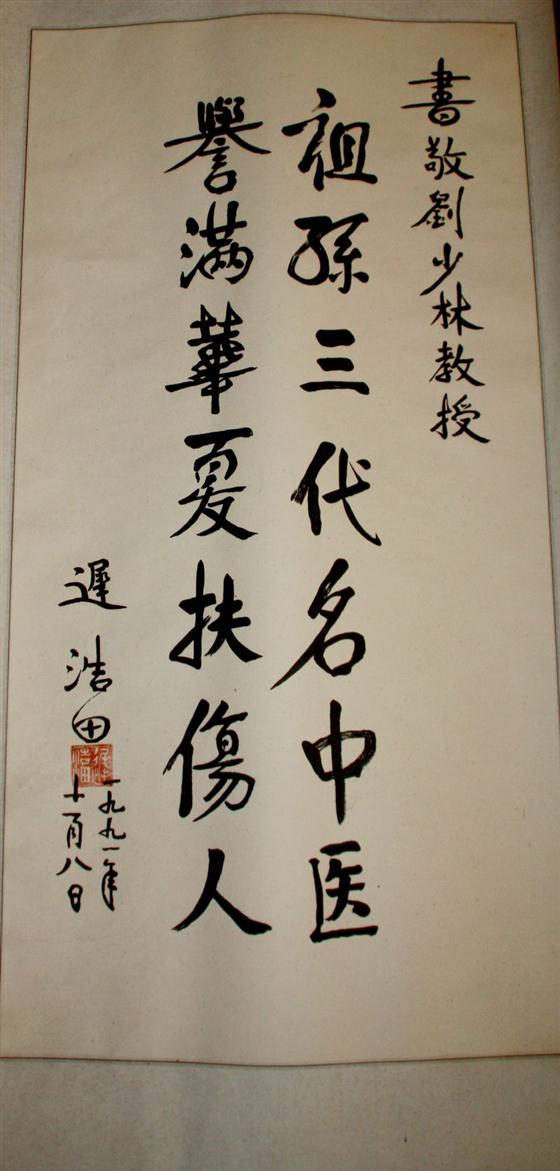 書敬劉少林教授
祖孫三代名中医
譽滿華夏扶傷人
遲浩田
一九九一年
十一月八日